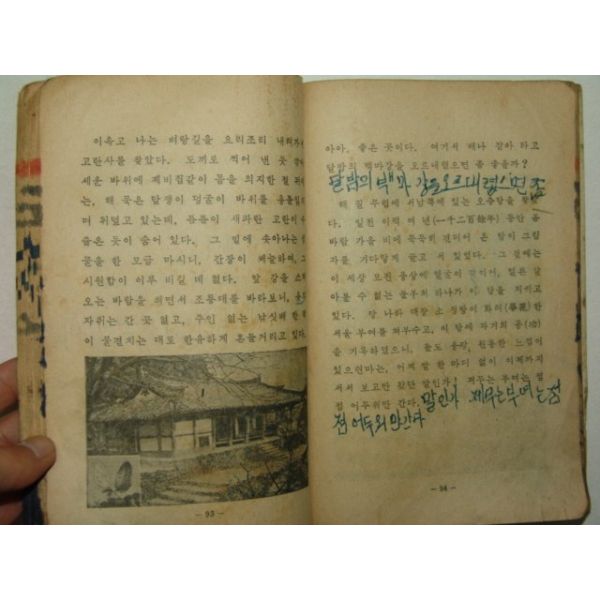 이윽고 나는 벼랑길을 요리조리 내려가
고란사를 찾았다. 도끼로 찍어 낸 듯
세운 바위에 제비집같이 몸을 의지한 절
며, 해 묵은 담쟁이 덩굴이 바위를
며 뒤덮고 있는데, 틈틈이 새파란 고란이
좁은 곳이 숨어 있다. 그 밑에 솟아나는
물을 한 모금 마시니, 간장이 써늘하여
시원함이 이루 비길 데 없다. 앞 강을 스
오는 바람을 쐬면서 조룡대를 바라보니,
자취는 간 곳 없고, 주인 없는 낚싯배 한
이 물결치는 대로 한유하게 흔들거리고 있다.
- 93 -
아아, 좋은 곳이다. 여기서 배나 잡아 타고
달밤의 백마강을 오르내렸으면 좀 좋을까?
달밤의 백마 강을오르내렸으면 조
해 질 무렵에 서남쪽에 있는 오층탑을
다. 실로 천 이백여 년(一千二百餘年) 동안 봄
바람 가을 비에 묵묵히 견디어 온 탑이 그림
자를 기다랗게 끌고 서 있었다. 그
이 세상 모진 풍상에 얼굴이 깎이어, 일은 말
아볼 수 없는 글부리 하나가 이 탑을 지키고
있다. 당 나라 대장 소 정방이 화려(華麗)한
서울 부여를 쳐부수고, 이 탑에 자기의 공(功)
을 기록하였으니, 돌도 응당, 원통한 느낌이
있으련마는, 어찌 말 한 마디 없이 이제까지
서서 보고만 있단 말인가? 저무는 부여는 점
점 어두워만 간다.
말인가 저무는부여는점
점 어두워만간다
- 94 -